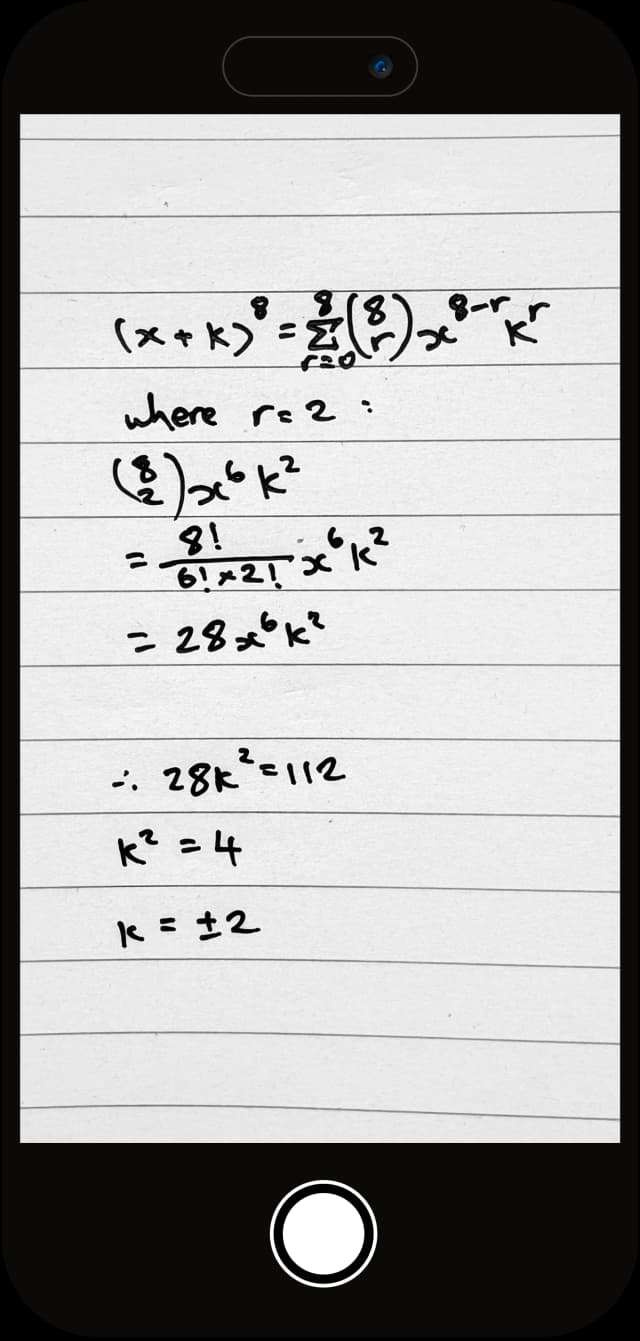 (x + k)⁸ = ⁸Σᵣ₌₀ (8 r) x⁸⁻ʳ kʳ
where r = 2 :
(8 2) x⁶ k²
= 8! / 6! × 2! x⁶ k²
= 28x⁶k²
∴ 28k² = 112
k² = 4
k = ±2